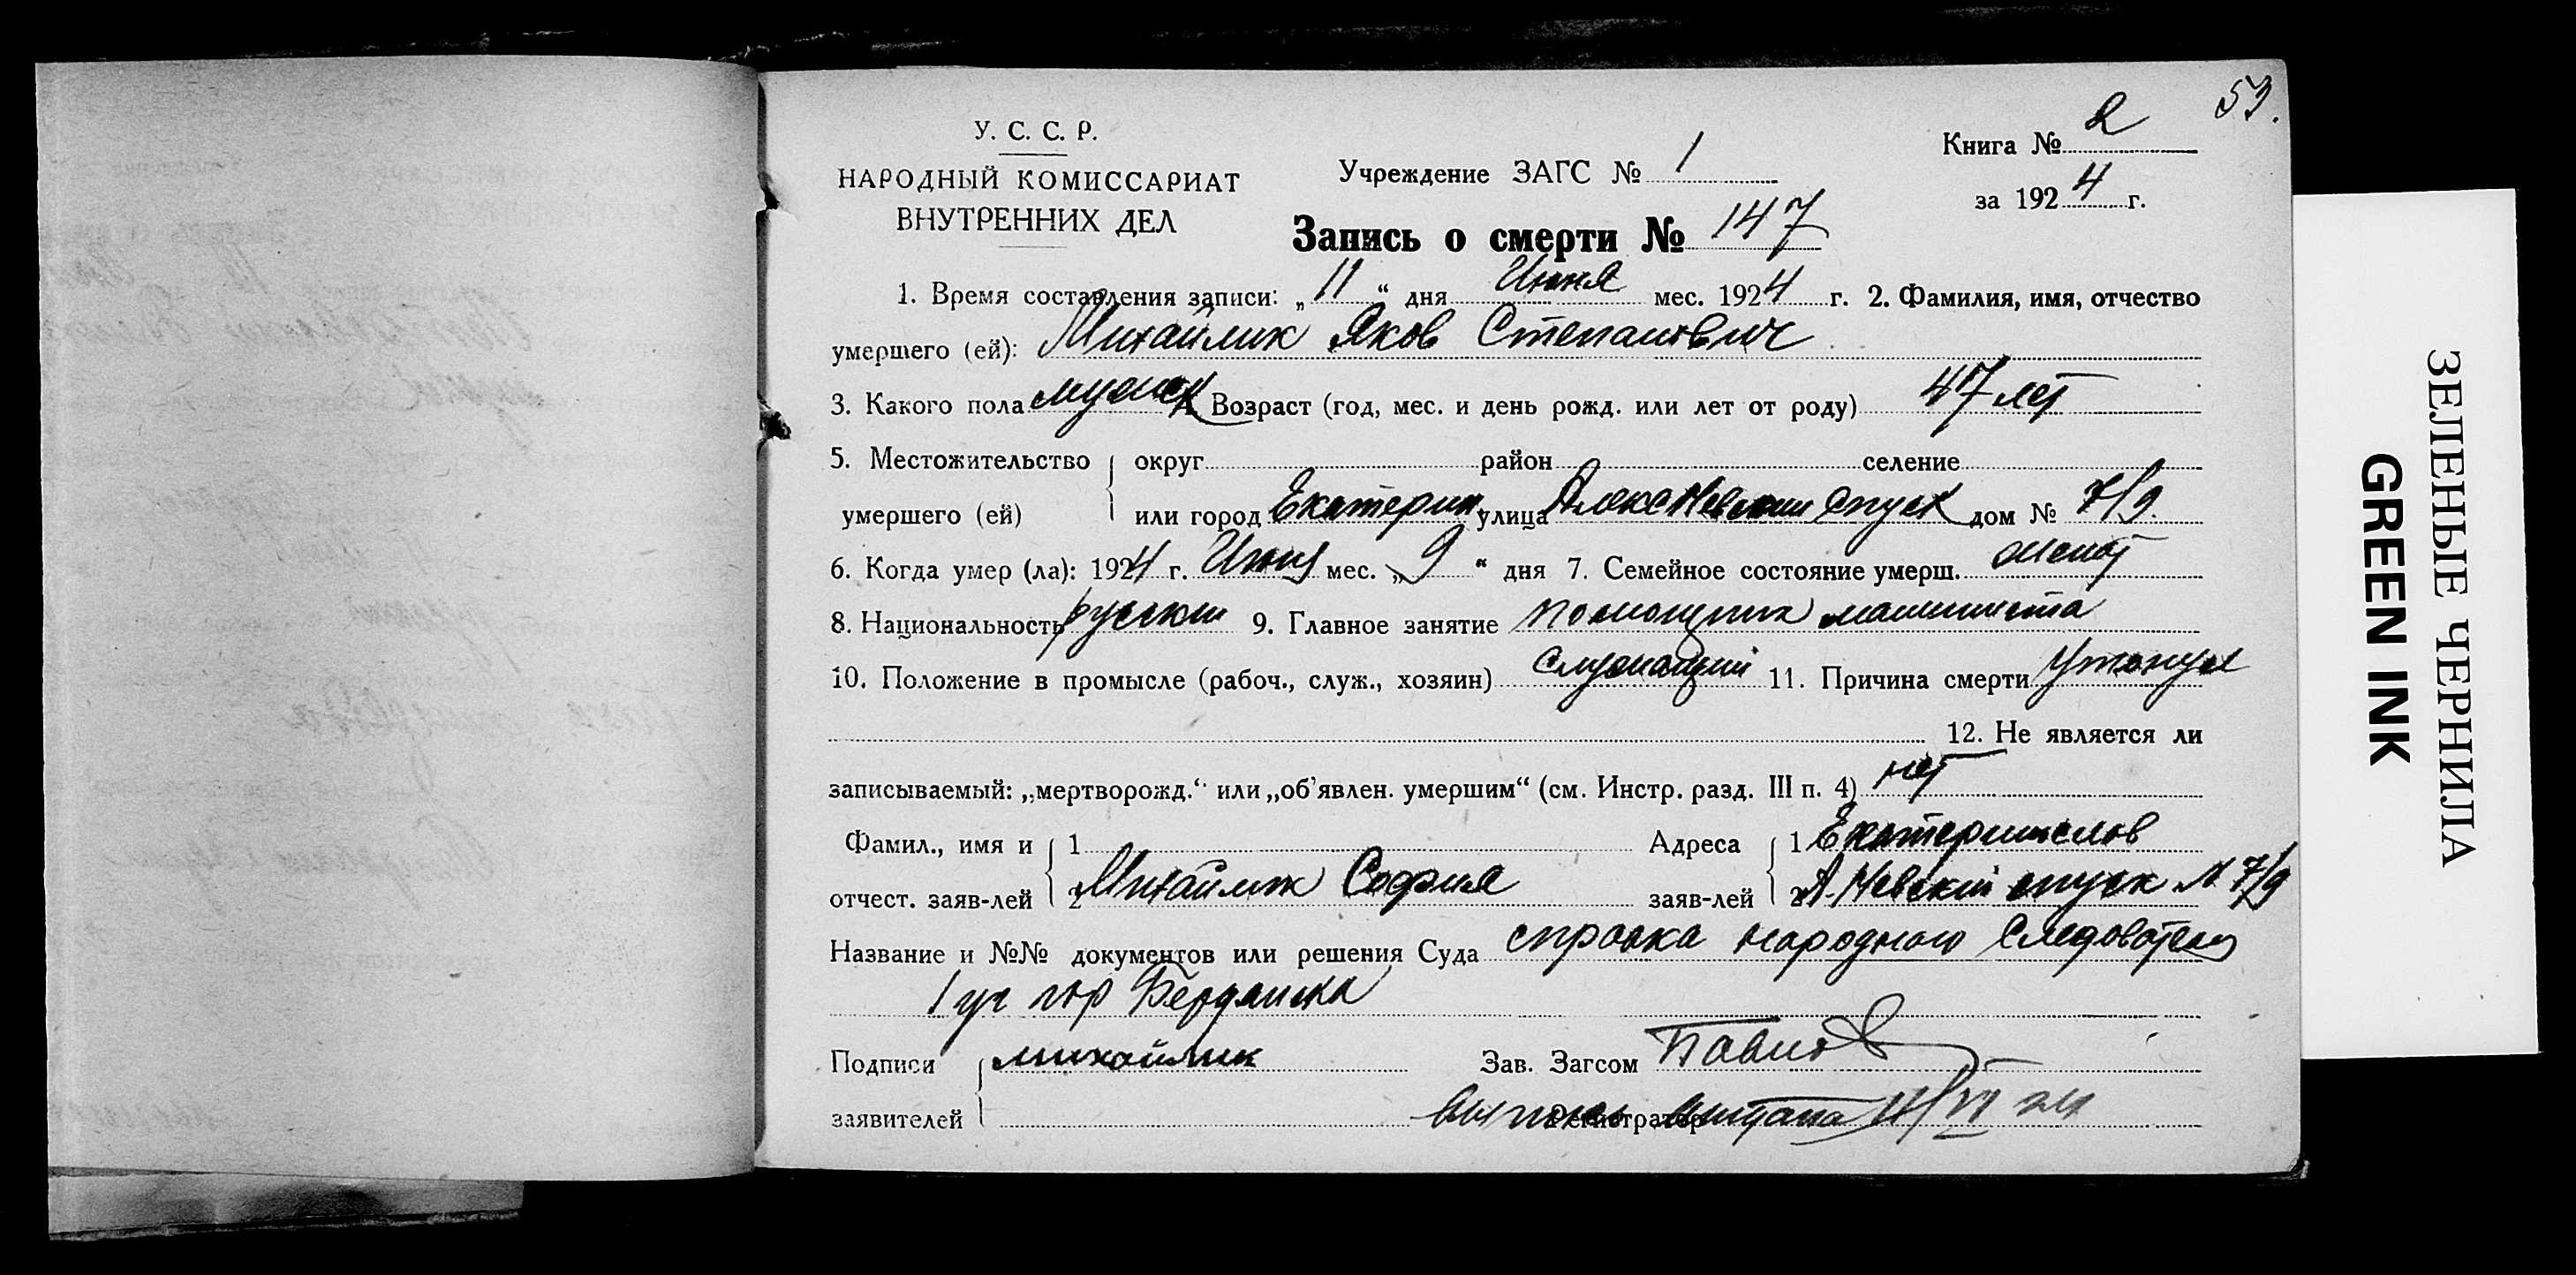 53.
У. С. С. Р.
НАРОДНЫЙ КОМИССАРИАТ
ВНУТРЕННИХ ДЕЛ
Учреждение ЗАГС № 1
Книга № 2
за 1924 г.
Запись о смерти № 147
1. Время составления записи: „11“ дня Июня мес. 1924 г. 2. Фамилия, имя, отчество
умершего (ей): Михайлик Яков Степанович
3. Какого пола мужск 4. Возраст (год, мес. и день рожд. или лет от роду) 47 лет
5. Местожительство округ район селение
умершего (ей) или город Екатерин. улица Алекс Невский спуск дом № 7/9.
6. Когда умер (ла): 1924 г. Июня мес. „9“ дня 7. Семейное состояние умерш. женат
8. Национальность русский 9. Главное занятие помощник машиниста
10. Положение в промысле (рабоч., служ., хозяин) служащий 11. Причина смерти утонул
12. Не является ли
записываемый: „мертворожд.“ или „об'явлен. умершим“ (см. Инстр. разд. III п. 4) нет
Фамил., имя и 1 Адреса 1 Екатеринослов
отчест. заяв-лей 2 Михайлик София заяв-лей 2 А. Невский спуск № 7/9
Название и №№ документов или решения Суда справка народного Следователя
1 уч гор Бердянска
Подписи михайлик Зав. Загсом
заявителей Регистратор 11/VI 24
ЗЕЛЕНЫЕ ЧЕРНИЛА
GREEN INK